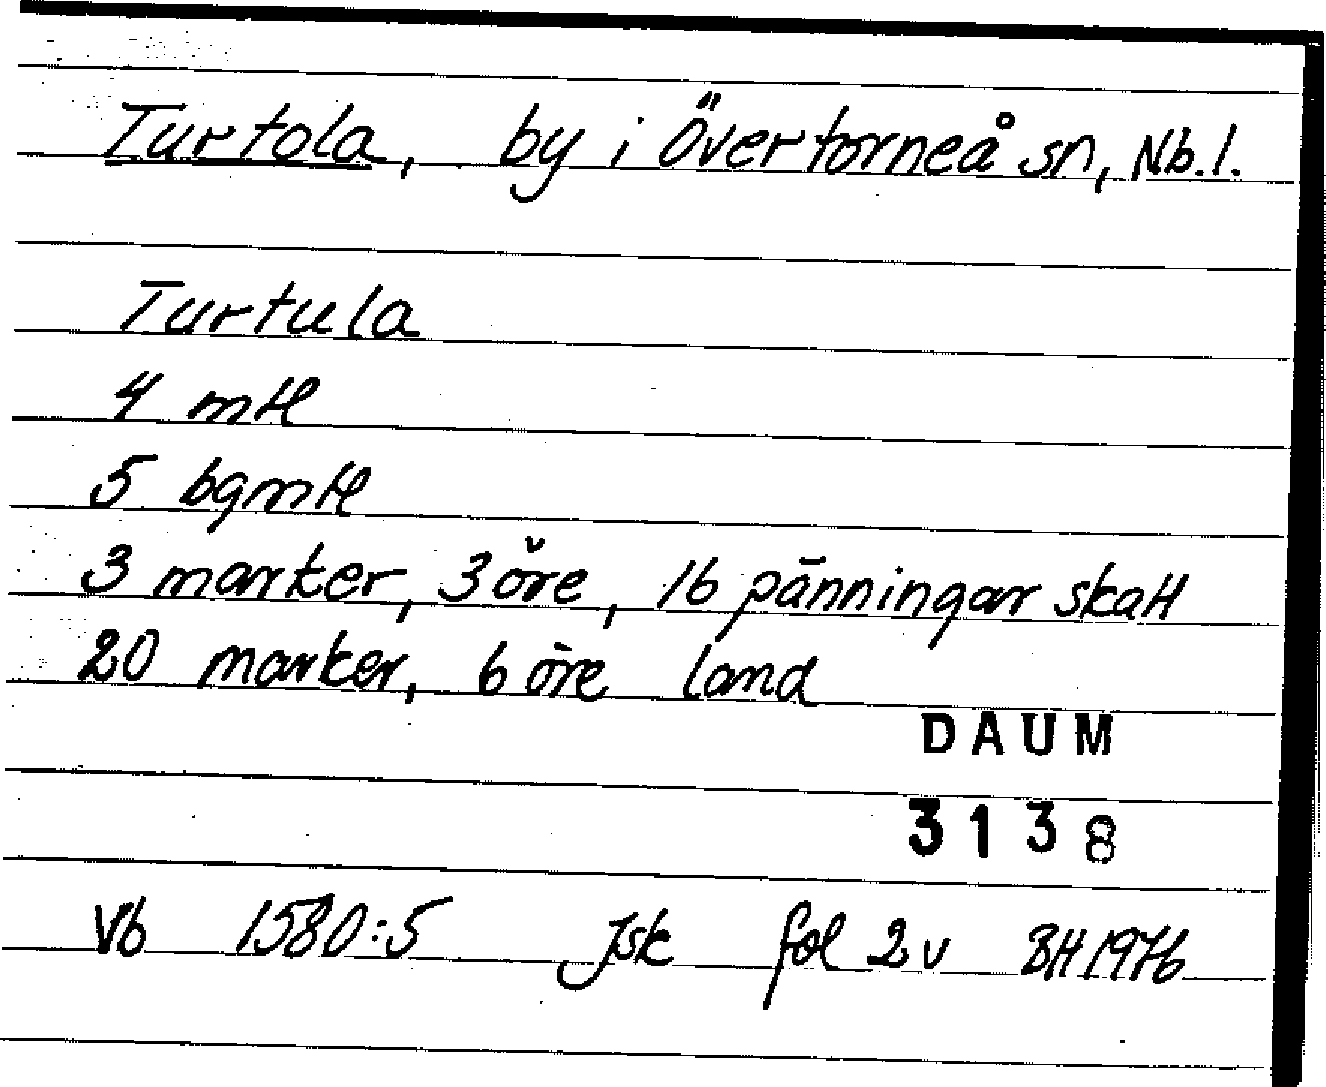 Turtola, by i Övertorneå sn, Nb.l.
Turtula
4 mtl
5 bgmtl
3 marker, 3 öre, 16 pänningar skatt
20 marker, 6 öre land
DAUM
3138
Vb 1580:5 Jsk fol 2v BH 1976